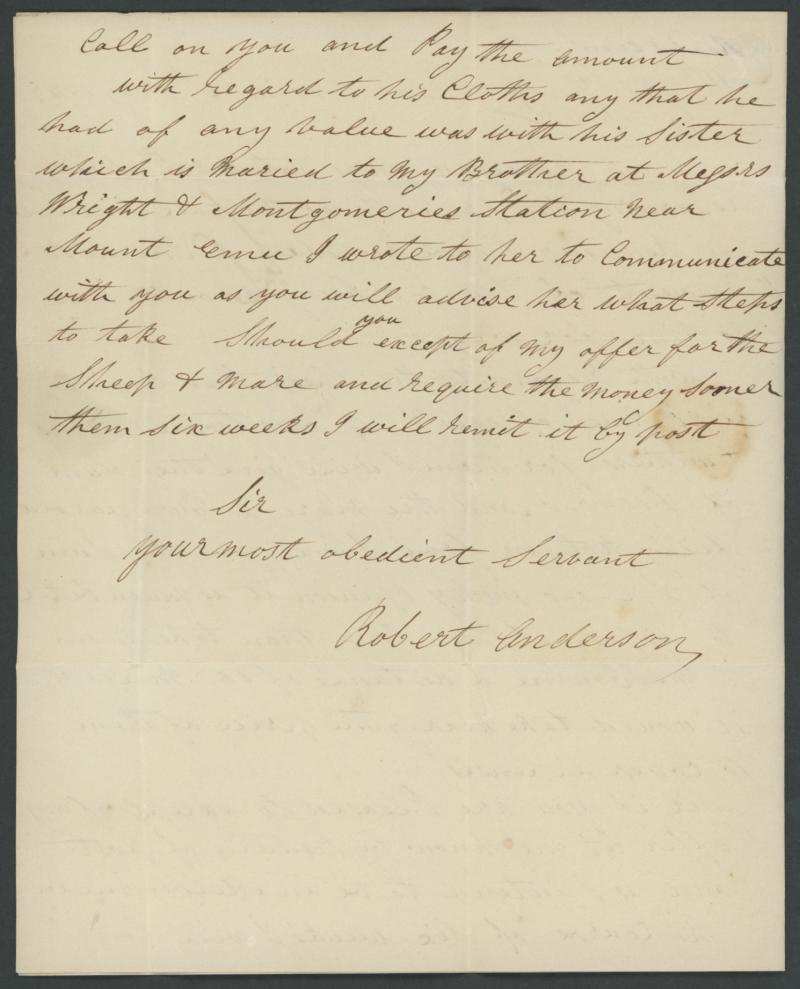 Call on you and Pay the amount
with regard to his Cloths any that he
had of any value was with his Sister
which is Maried to my Brother at Messrs
Wright & Montgomeries Station near
Mount emu I wrote to her to Communicate
with you as you will advise her what steps
to take Should you except of my offer for the
Sheep & mare and require the money sooner
them six weeks I will remit it by post
Sir
your most obedient Servant
Robert Anderson